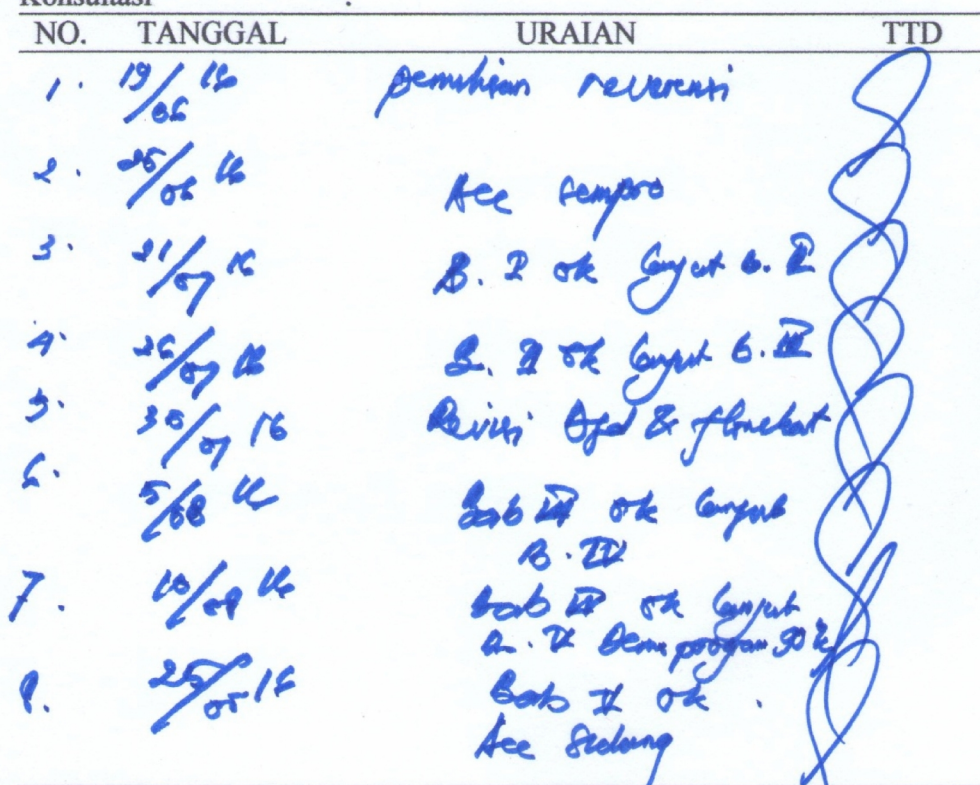 Konsultasi :
NO. TANGGAL URAIAN TTD
1. 19/06 16 pemilihan reverensi
2. 25/06 16 Acc sempro
3. 21/07 16 B. I ok lanjut b. II
4. 26/07 16 B. II ok lanjut b. III
5. 30/07 16 Revisi & flowchart
6. 5/08 16 Bab III ok lanjut
B. IV
7. 10/08 16 bab IV ok lanjut
B. V Demo program 90%
8. 25/08 16 Bab V ok.
Acc Sidang